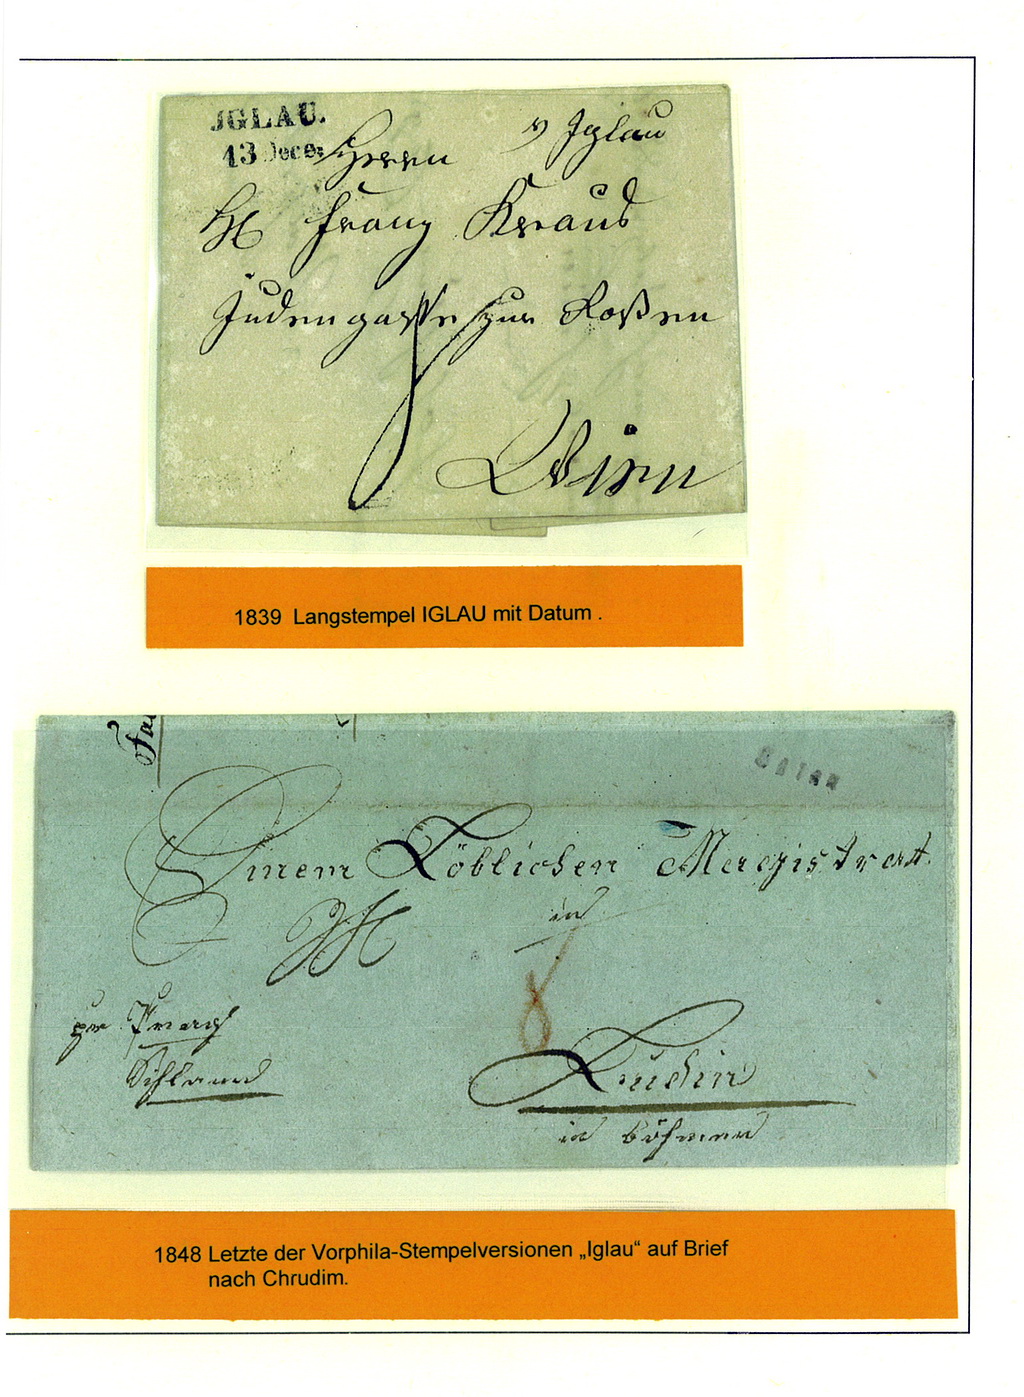 IGLAU.
13 Dece:
v Iglau
Herrn
Franz Kraus
Judengasse zur Roßen
Wien
1839 Langstempel IGLAU mit Datum .
Einem Löblichen Magistrat
in
pr Prag
in Böhmen
1848 Letzte der Vorphila-Stempelversionen „Iglau“ auf Brief
nach Chrudim.